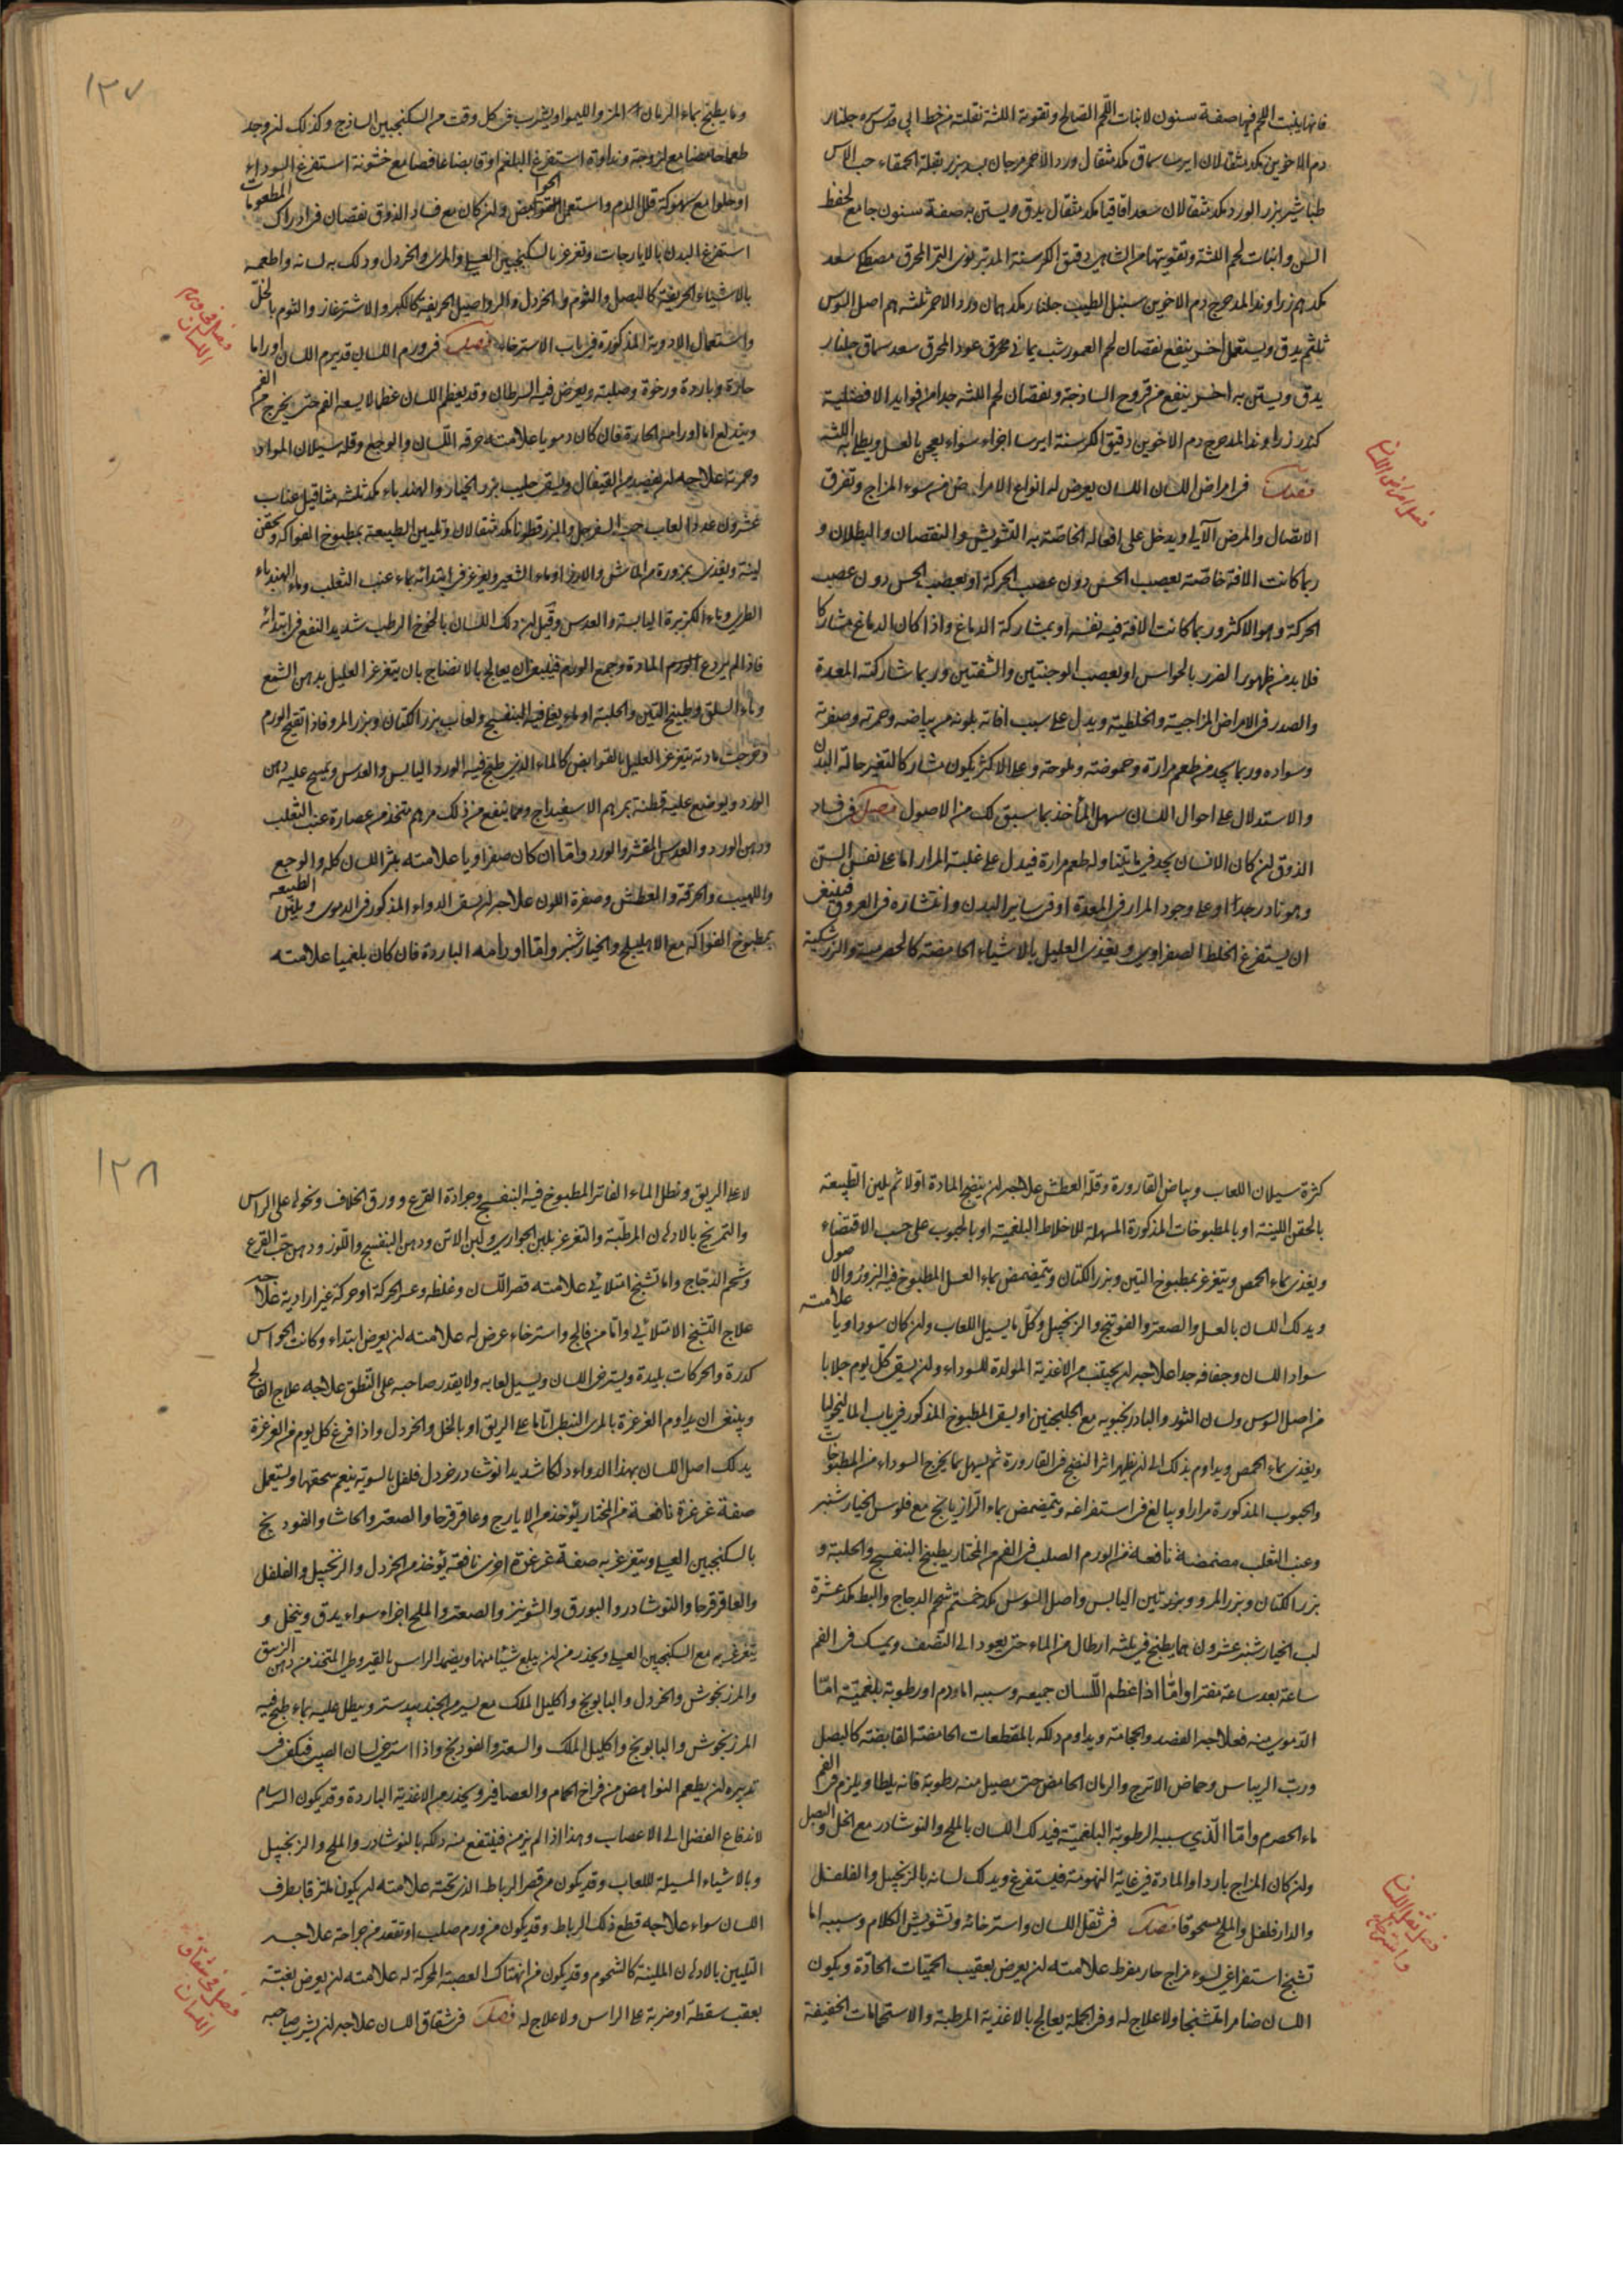 فانها ينبت اللحم فيها صفة سنون لانبات اللحم الصالح وتقوية اللثة نقلته من خط ابي قدس سره جلنار
دم الاخوين مكد مثقالان ايرسا سماق مكد مثقال ورد الاحمر مرجان بسد بزر بقلة الحمقاء حب الآس
طباشير بزر الورد مكد مثقالان سعد اقاقيا مكد مثقال يدق ويستن به صفة سنون جامع لحفظ
السن وانبات لحم اللثة وتقويتها من الشاهي دقيق الكرسنة المدبر نوى التمر المحرق مصطكى سعد
مكد درهم زراوند المدحرج دم الاخوين سنبل الطيب جلنار مكد درهمان ورد الاحمر ثلثة دراهم اصل السوس
ثلثهم يدق ويستعمل اخر ينفع نقصان لحم العمور شب يماني محرق عود المحرق سعد سماق جلنار
يدق ويستن به اخر ينفع من قروح الساذجة ونقصان لحم اللثة جدا من فوايد الافضلية
كندر زراوند المدحرج دم الاخوين دقيق الكرسنة ايرسا اجزاء سواء يعجن بالعسل ويطلى به اللثة
فصل في امراض اللسان اللسان يعرض له انواع الامراض من سوء المزاج وتفرق
الاتصال والمرض الآلي ويدخل على افعاله الخاصة به التشويش والنقصان والبطلان و
ربما كانت الافة خاصة بعصب الحس دون عصب الحركة او بعصب الحس دون عصب
الحركة وهو الاكثر وربما كانت الافة فيه نفسه او بمشاركة الدماغ واذا كان الدماغ مشاركا
فلا بد من ظهور الضرر بالحواس او بعصب الوجنتين والشفتين وربما شاركته المعدة
والصدر في الامراض المزاجية والخلطية ويدل على سبب افاته بلونه من بياضه وحمرته وصفرته
وسواده وربما يجد من طعم مرارة وحموضة وملوحة وعلى الاكثر يكون مشاركا لتغير حالة البدن
والاستدلال على احوال اللسان سهل المأخذ بما سبق لك من الاصول فصل في فساد
الذوق ان كان الانسان يجد فيما يتناوله طعم مرارة فيدل على غلبة المرار اما على نفس السن
وهو نادر جدا او على وجود المرار في المعدة او في ساير البدن وانتشاره في العروق فينبغي
ان يستفرغ الخلط الصفراوي ويغذى العليل بالاشياء الحامضة كالحصرمية والزرشكية
فصل امراض اللسان
١٢٧
وما يطبخ بماء الرمان المز والليمو او يشرب في كل وقت من السكنجبين الساذج وكذلك ان وجد
طعما حامضا مع لزوجة ونداوة استفرغ البلغم او قابضا عافصا مع خشونة استفرغ السوداء
او حلوا مع سهوكة قلل الدم واستعمل القوابض وان كان مع فساد الذوق نقصان في ادراك المطعومات
استفرغ البدن بالايارجات وتغرغر بالسكنجبين العسلي والمري والخردل ودلك به لسانه واطعمه
بالاشياء الحريفة كالبصل والثوم والخردل والرواصيل الحريفة كالكبر والاشترغاز والثوم بالخل
واستعمال الادوية المذكورة في باب الاسترخاء فصل في ورم اللسان قد يرم اللسان اوراما
حارة وباردة ورخوة وصلبة ويعرض فيه السرطان وقد يعظم اللسان عظما لا يسعه الفم حتى يخرج من الفم
ويندلع اما اورامه الحارة فان كان دمويا علامته حرقة اللسان والوجع وقلة سيلان المواد
وحمرته علاجه ان يفصد من القيفال ويسقى حليب بزر الخيار والهندباء مكد ثلثة مثاقيل عناب
عشرون عددا لعاب حب السفرجل والبزر قطونا مكد مثقالان وتليين الطبيعة بمطبوخ الفواكه وبحقن
لينة ويغذى بمزورة من الماش والارز او ماء الشعير ويغرغر في ابتدائه بماء عنب الثعلب وماء الهندباء
الطري وماء الكزبرة اليابسة والعدس وقيل ان دلك اللسان بالخوخ الرطب شديد النفع في ابتدائه
فاذا لم يردع الورم المادة وجمع الورم فينبغي ان يعالج بالانضاج بان يتغرغر العليل بدهن الشمع
وماء السلق وطبيخ التين والحلبة او ماء يغلى فيه البنفسج ولعاب بزر الكتان وبزر المرو فاذا تقيح الورم
وخرجت مادته يتغرغر العليل بالقوابض كالماء الذي طبخ فيه الورد اليابس والعدس ويمسح عليه دهن
الورد ويوضع عليه قطنة بمرهم الاسفيداج ومما ينفع من ذلك مرهم متخذ من عصارة عنب الثعلب
ودهن الورد والعدس المقشر والورد واما ان كان صفراويا علامته بثر اللسان كله والوجع
واللهيب والحرقة والعطش وصفرة اللون علاجه ان يسقى الدواء المذكور في الدموي ويلين الطبيعة
بمطبوخ الفواكه مع الاهليلج والخيارشنبر واما اورامه الباردة فان كان بلغميا علامته
فصل في ورم اللسان
كثرة سيلان اللعاب وبياض القارورة وقلة العطش علاجه ان ينضج المادة اولا ثم يلين الطبيعة
بالحقن اللينة او بالمطبوخات المذكورة المسهلة للاخلاط البلغمية او بالحبوب على حسب الاقتضاء
ويغذى بماء الحمص ويتغرغر بمطبوخ التين وبزر الكتان ويتمضمض بماء العسل المطبوخ فيه البزور والاصول
ويدلك اللسان بالعسل والصعتر والفوتنج والزنجبيل وكل ما يسيل اللعاب وان كان سوداويا علامته
سواد اللسان وجفافه جدا علاجه ان يجتنب من الاغذية المولدة للسوداء وان يسقى كل يوم جلابا
من اصل السوس ولسان الثور والبادرنجبويه مع الجلنجبين او يسقى المطبوخ المذكور في باب الماليخوليا
ويغذى بماء الحمص ويداوم بذلك الى ان يظهر اثر النضج في القارورة ثم يسهل بما يخرج السوداء من المطبوخات
والحبوب المذكورة مرارا ويبالغ في استفراغه ويتمضمض بماء الرازيانج مع فلوس الخيارشنبر
وعنب الثعلب مضمضة نافعة من الورم الصلب في الفم من المختار يطبخ البنفسج والحلبة و
بزر الكتان وبزر المرو وبزر تين اليابس واصل السوس مكد خمسة شحم الدجاج والبط مكد عشرة
لب الخيارشنبر عشرون درهما يطبخ في ثلثة ارطال من الماء حتى يعود الى النصف ويمسك في الفم
ساعة بعد ساعة مفترا واما اذا عظم اللسان جميعه وسببه اما ودم او رطوبة بلغمية اما
الدموي منه فعلاجه الفصد والحجامة ويداوم دلكه بالمقطعات الحامضة القابضة كالبصل
ورب الريباس وحماض الاترج والرمان الحامض حتى يسيل منه رطوبة فانه يلطا ويلزم في الفم
ماء الحصرم واما الذي سببه الرطوبة البلغمية فيدلك اللسان بالملح والنوشادر مع الخل والبصل
وان كان المزاج باردا والمادة في غاية النهومة فليستفرغ ويدلك لسانه بالزنجبيل والفلفل
والدار فلفل والملح مسحوقا فصل في ثقل اللسان واسترخائه وتشويش الكلام وسببه اما
تشنج استفراغي لسوء مزاج حار مفرط علامته ان يعرض بعقيب الحميات الحادة ويكون
اللسان ضامرا متشنجا ولا علاج له وفي الجملة يعالج بالاغذية المرطبة والاستحمامات الخفيفة
فصل ثقل اللسان واسترخائه
١٢٨
لا على الريق ونطل الماء الفاتر المطبوخ فيه البنفسج وجرادة القرع وورق الخلاف ونحوه على الراس
والتمريخ بالادهان المرطبة والتغرغر بلبن الجواري ولبن الاتن ودهن البنفسج واللوز ودهن حب القرع
وشحم الدجاج واما تشنج امتلائي علامته قصر اللسان وغلظه وعسر الحركة او حركة غير ارادية علاجه
علاج التشنج الامتلائي واما من فالج واسترخاء عرض له علامته ان يعرض ابتداء وكانت الحواس
كدرة والحركات بليدة ويسترخي اللسان ويسيل لعابه ولا يقدر صاحبه على النطق علاجه علاج الفالج
وينبغي ان يداوم الغرغرة بالمري النبطي اياما على الريق او بالخل والخردل واذا فرغ كل يوم من الغرغرة
يدلك اصل اللسان بهذا الدواء دلكا شديدا نوشادر خردل فلفل بالسوية ينعم سحقها ويستعمل
صفة غرغرة نافعة من المختار يؤخذ من الايارج وعاقرقرحا والصعتر والحاشا والفودنج
بالسكنجبين العسلي ويتغرغر به صفة غرغرة اخرى نافعة يؤخذ من الخردل والزنجبيل والفلفل
والعاقرقرحا والنوشادر والبورق والشونيز والصعتر والملح اجزاء سواء يدق وينخل و
يتغرغر به مع السكنجبين العسلي ويحذر من ان يبلع شيئا منها ويضمد الراس بالقيروطي المتخذ من دهن الزنبق
والمرزنجوش والخردل والبابونج واكليل الملك مع يسير من الجندبيدستر وينطل عليه بماء طبخ فيه
المرزنجوش والبابونج واكليل الملك والسعتر والفودنج واذا استرخى لسان الصبي فيكفي في
تدبيره ان يطعم النواهض من فراخ الحمام والعصافير ويحذر من الاغذية الباردة وقد يكون السرسام
لاندفاع الفضل الى الاعصاب وهذا اذا لم يزمن فينتفع منه دلكه بالنوشادر والملح والزنجبيل
وبالاشياء المسيلة للعاب وقد يكون من قصر الرباط الذي تحته علامته ان يكون ملتزقا بطرف
اللسان سواء علاجه قطع ذلك الرباط وقد يكون من ورم صلب او تعقد من جراحة علاجه
التليين بالادهان الملينة كالشحوم وقد يكون من انهتاك العصبة المحركة له علامته ان يعرض بغتة
بعقب سقطة او ضربة على الراس ولا علاج له فصل في شقاق اللسان علاجه ان يشرب صاحبه
فصل في شقاق اللسان